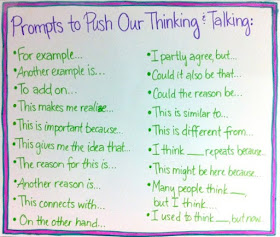 Prompts to Push Our Thinking & Talking:
• For example...
• Another example is...
• To add on...
• This makes me realize...
• This is important because...
• This gives me the idea that...
• The reason for this is...
• Another reason is...
• This connects with...
• On the other hand...
• I partly agree, but...
• Could it also be that...
• Could the reason be...
• This is similar to...
• This is different from...
• I think ___ repeats because...
• This might be here because...
• Many people think ___,
but I think...
• I used to think ___, but now...